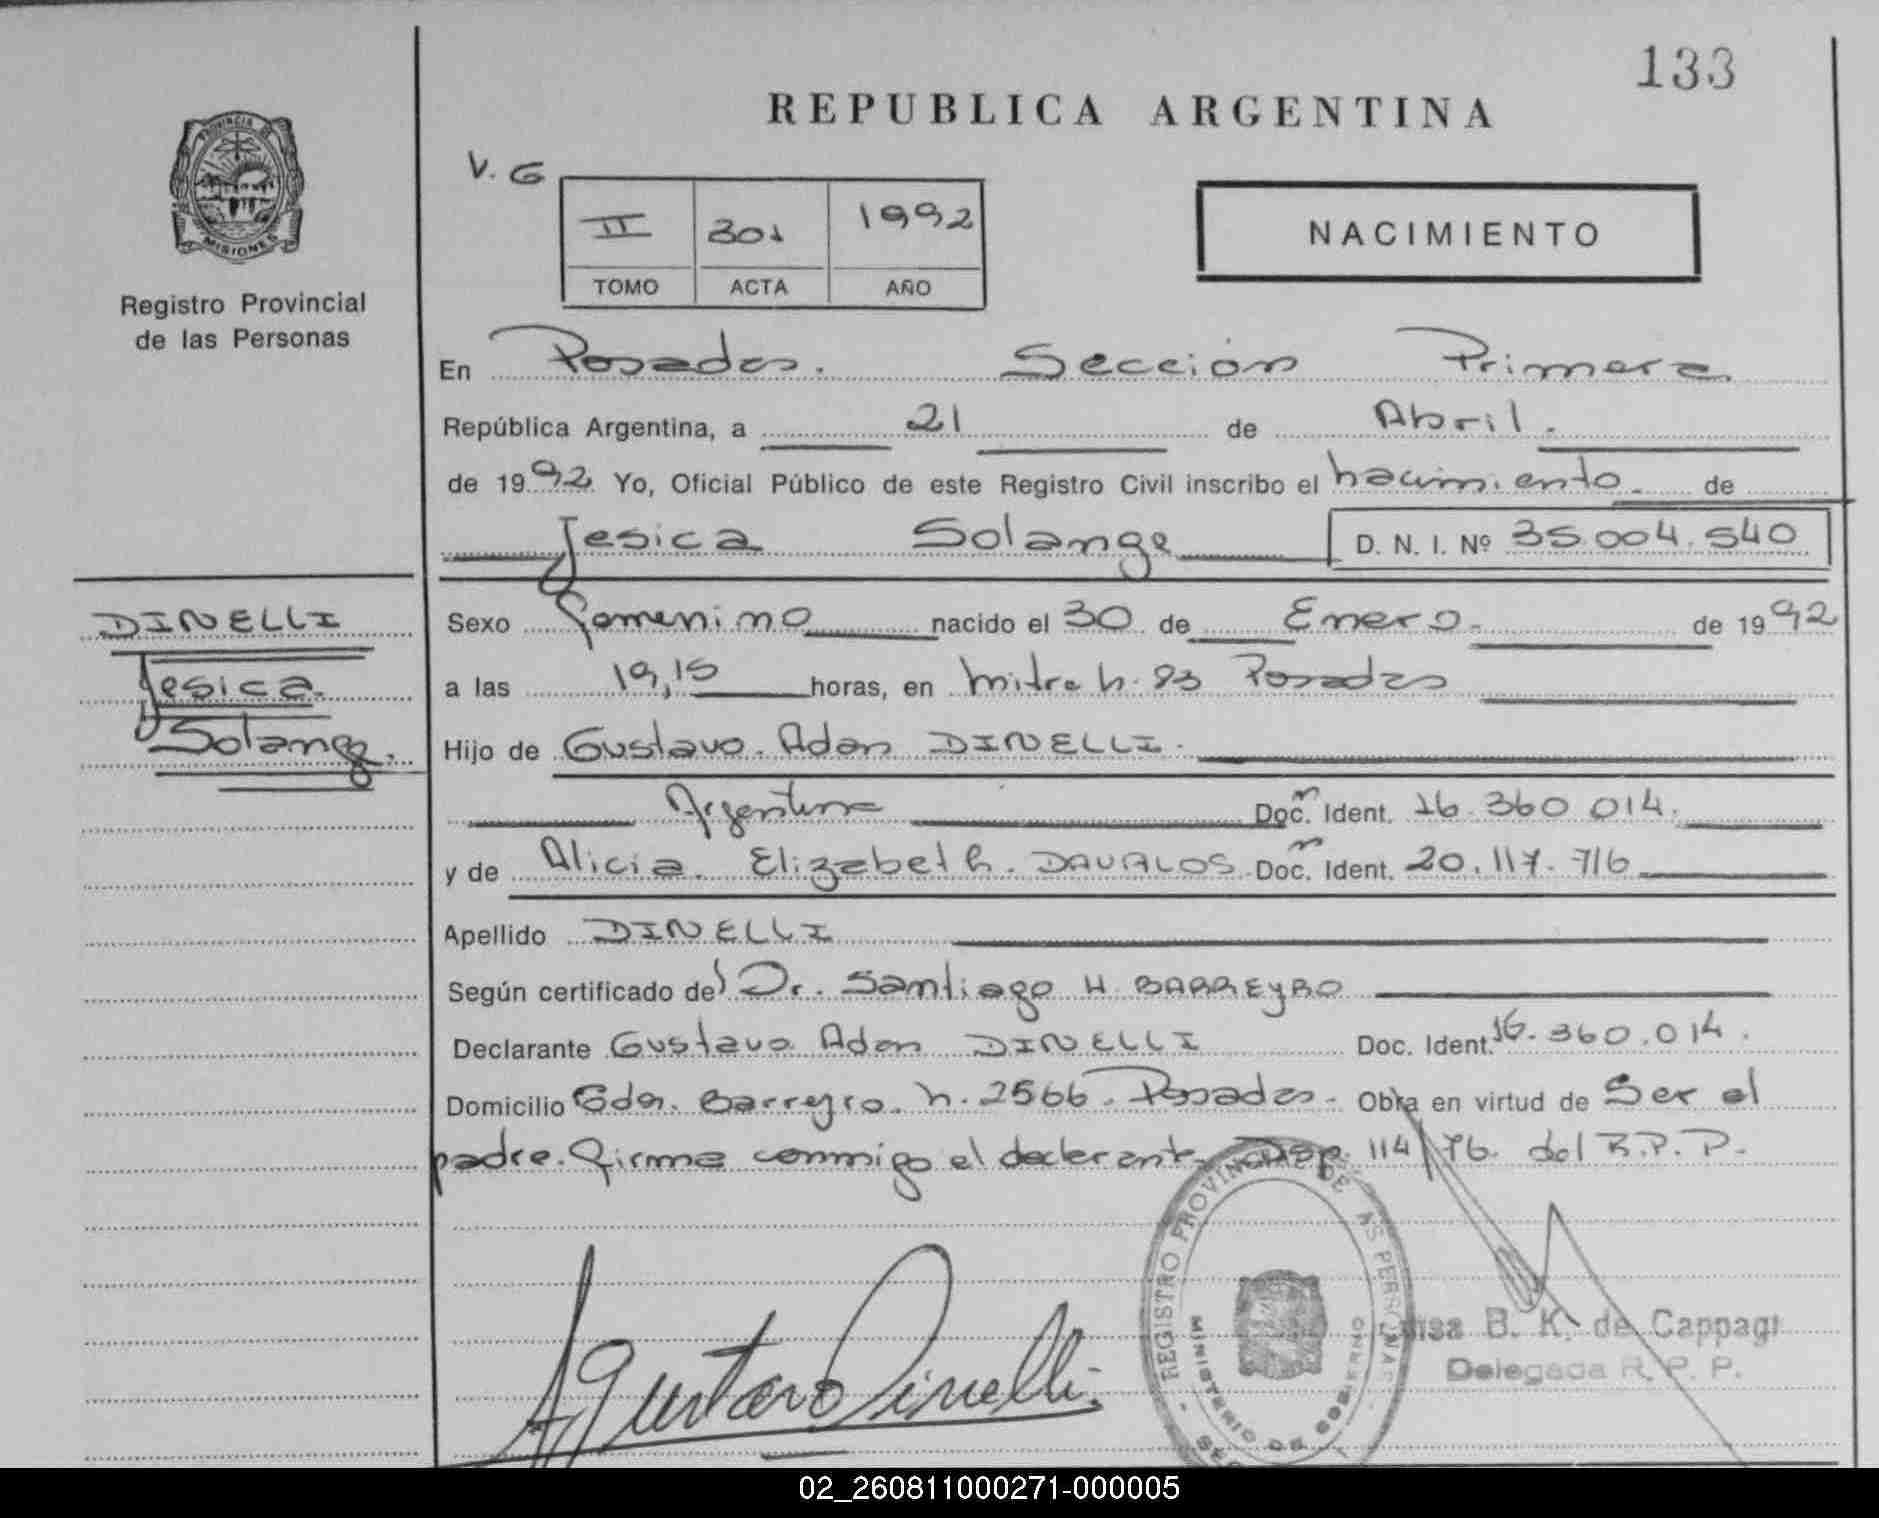 133
REPUBLICA ARGENTINA
PROVINCIA DE
MISIONES
Registro Provincial
de las Personas
V. G
II 301 1992
TOMO ACTA AÑO
NACIMIENTO
En Posadas. Sección Primera
República Argentina, a 21 de Abril.
de 1992 Yo, Oficial Público de este Registro Civil inscribo el nacimiento de
Jesica Solange D. N. I. Nº 35.004.540
DINELLI
Jesica
Solange.
Sexo Femenino nacido el 30 de Enero de 1992
a las 19,15 horas, en Mitre n. 93 Posadas
Hijo de Gustavo Adan DINELLI.
Argentina Docm. Ident. 16.360.014.
y de Alicia Elizabeth DAVALOS Docm. Ident. 20.117.716
Apellido DINELLI
Según certificado del Dr. Santiago H BARREYRO
Declarante Gustavo Adan DINELLI Doc. Ident. 16.360.014.
Domicilio Gdor. Barreyro n. 2566. Posadas. Obra en virtud de Ser el
padre. Firma conmigo el declarante. Disp. 114/76 del R.P.P.
REGISTRO PROVINCIAL DE LAS PERSONAS
MINISTERIO DE GOBIERNO
Gustavo Dinelli
B. K. de Cappagi
Delegada R. P. P.
02_260811000271-000005